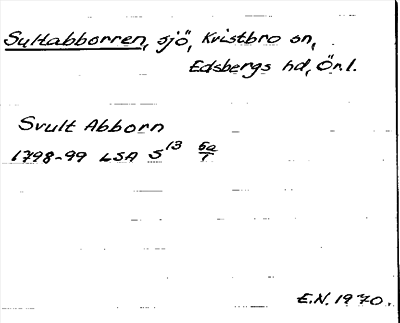 Sultabborren, sjö, Kristbro sn,
Edsbergs hd, Ör.l.
Svult Abborn
1798-99 LSA S¹³ 6a/1
E.N. 1970.